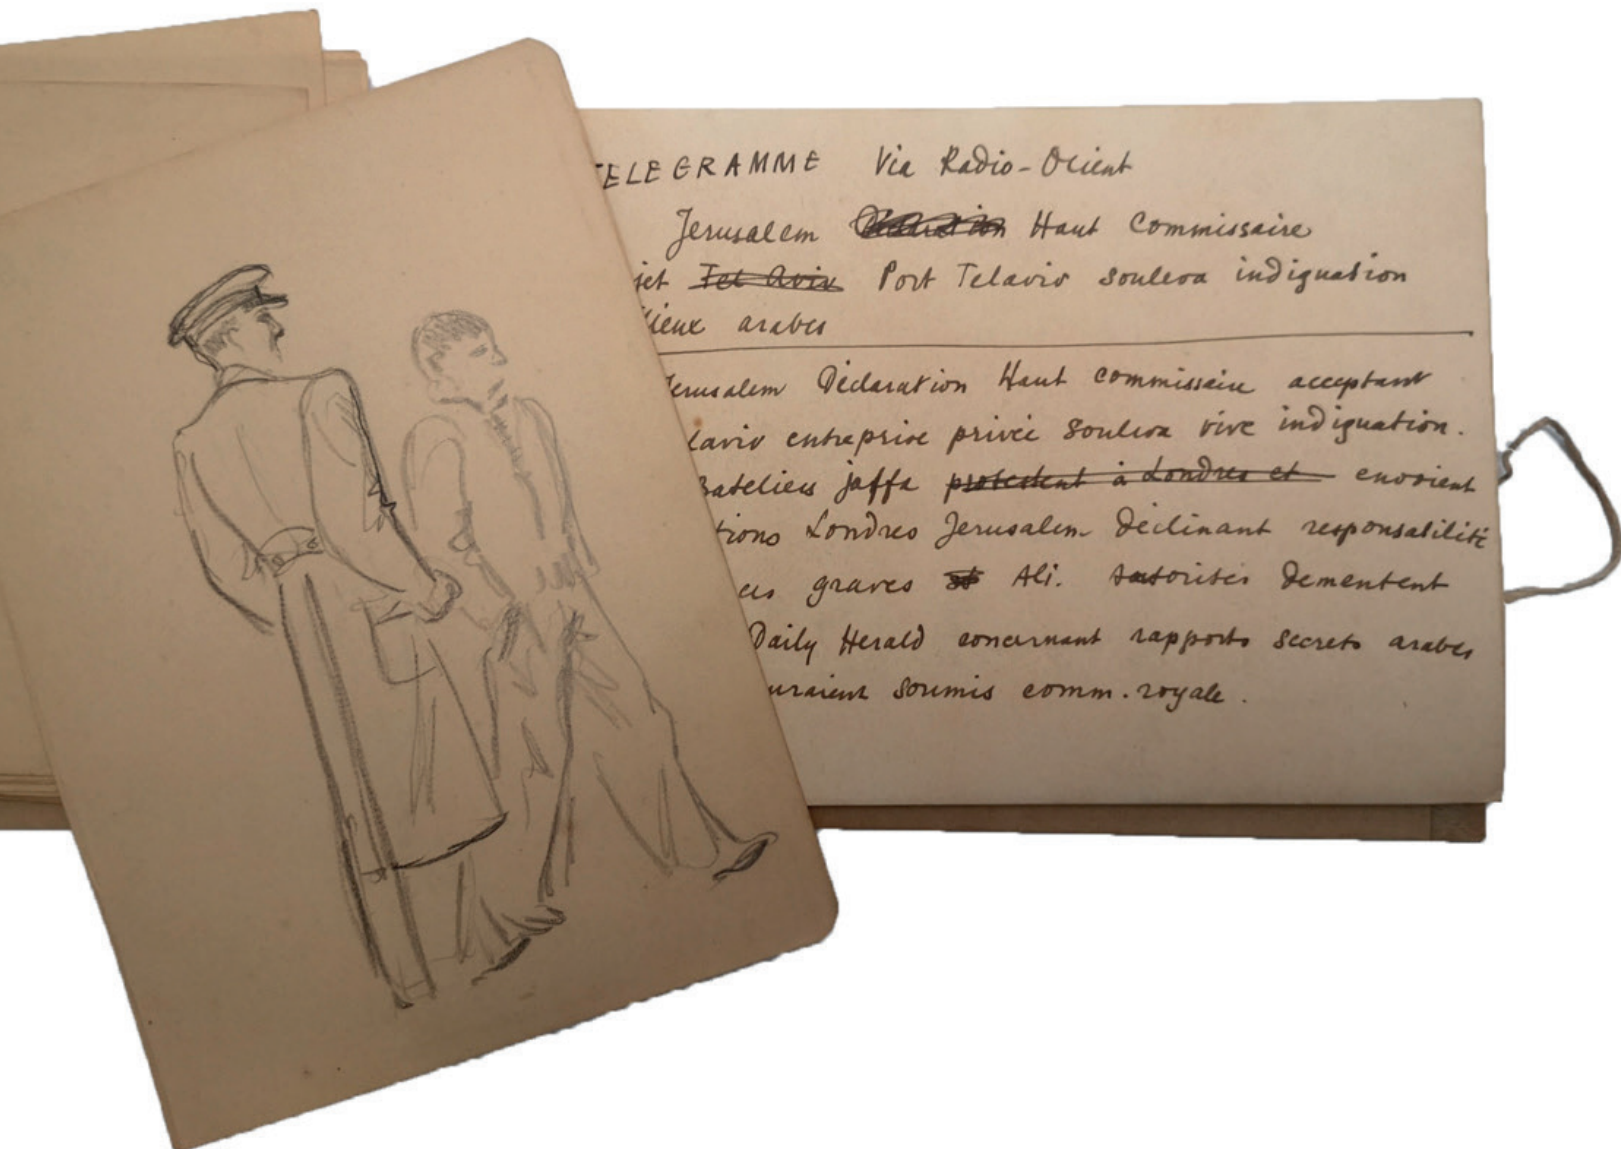 TELEGRAMME Via Radio-Orient
Jerusalem Haut Commissaire
jet Tel Aviv Port Telaviv souleva indignation
lieux arabes
Jerusalem Déclaration Haut commissaire acceptant
laviv entreprise privée souleva vive indignation.
Bateliers jaffa protestent à Londres et envoient
tions Londres Jerusalem déclinant responsabilité
es graves et Ali. Autorités dementent
Daily Herald concernant rapports secrets arabes
uraient soumis comm. royale.